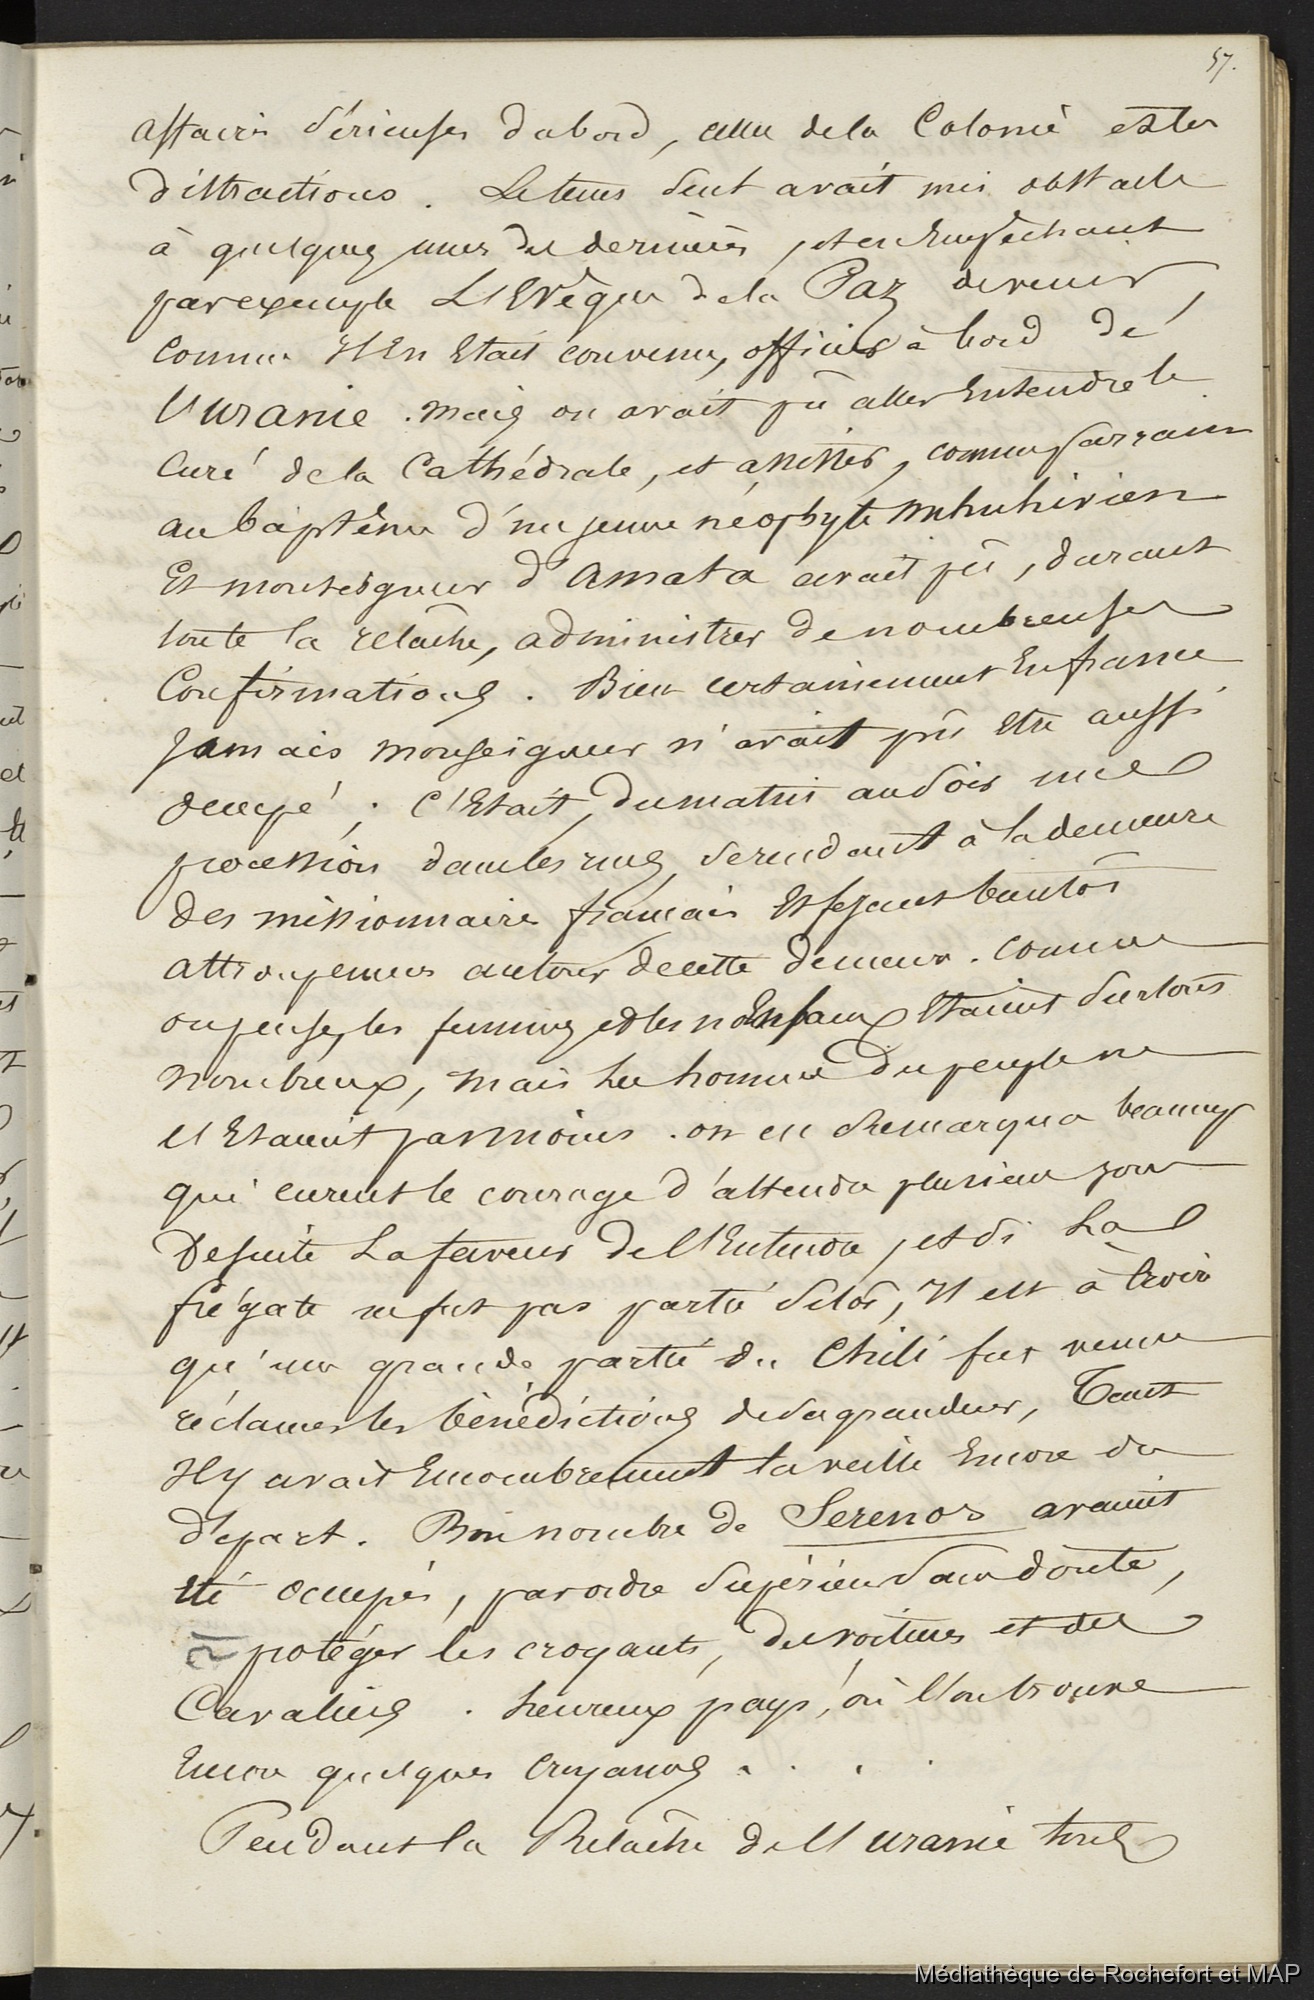 57.
affaires sérieuses dabord, celles dela Colonie et les
distractions. Le tems seul avait mis obstacle
à quelques unes des dernières, et en empêchant
par exemple L'Evêque dela Paz de venir,
comme il En Etait convenu, officier à bord de
l'uranie. Mais on avait pû aller Entendre le
Curé dela Cathédrale, et assister, comme parrain
au baptême d'un jeune néophyte
Et monseigneur d'Amata avait pû, durant
toute la relâche, administrer de nombreuses
Confirmations. Bien certainement En france
Jamais monseigneur n'avait pû Etre aussi
occupé; C'Etait, du matin au soir une
procession dans les rues, se rendant à la demeure
des missionnaires français Et fesant bientôt
attroupemens autour de cette demeure. comme
on pense, les femmes et les Enfans Etaient surtout
nombreux, mais les hommes du peuple ne
l'Etaient pas moins. on en remarqua beaucoup
qui eurent le courage d'attendre plusieurs jours
De suite La faveur de l'Entendre, et si La
frégate ne fut pas partie sitôt, il est à croire
qu'une grande partie du Chili fut venue
réclamer les bénédictions de sa grandeur, Tant
Il y avait Encombrement la veille Encore du
départ. Bon nombre de Serenos avaient
Eté occupés, par ordre supérieur sans doute,
à protéger les croyants, des voitures et des
Cavaliers. heureux pays, où l'on trouve
Encore quelques croyans . . . .
Pendant la Relâche de l'uranie tous
Médiathèque de Rochefort et MAP